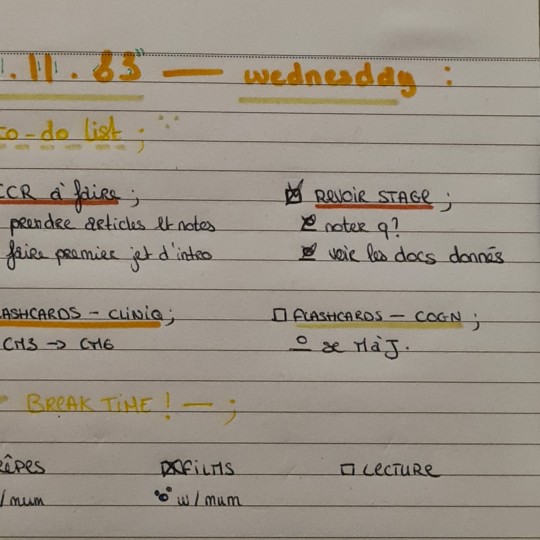 .11.23 — wednesday :
to-do list ;
CCR à faire ;
prendre articles et notes
faire premier jet d'intro
REVOIR STAGE ;
noter q?
voir les docs donnés
FLASHCARDS - CLINIQ ;
CM3 → CM6
FLASHCARDS - COGN ;
se MàJ.
BREAK TIME ! — ;
CRÊPES
w/mum
FILMS
w/mum
LECTURE